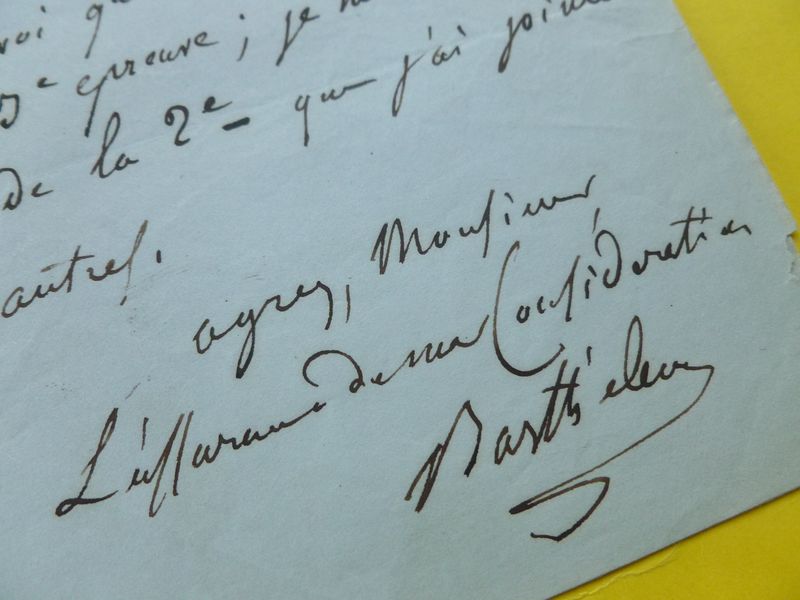 que
3e épreuve ; je
de la 2e - que j'ai
autres.
agrez, Monsieur,
L'assurance de ma Considération
Barthélemy